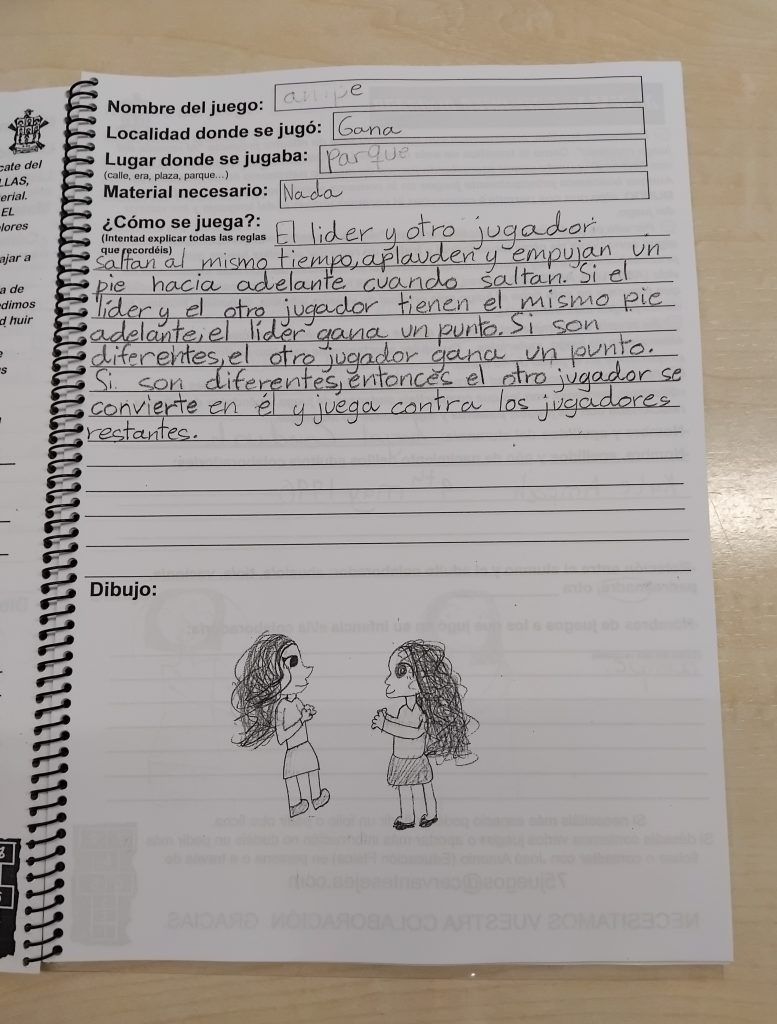 cate del
LLAS,
erial.
EL
lores
ajar a
a de
dimos
d huir
Nombre del juego: ampe
Localidad donde se jugó: Gana
Lugar donde se jugaba: Parque
(calle, era, plaza, parque...)
Material necesario: Nada
¿Cómo se juega?: El lider y otro jugador
(Intentad explicar todas las reglas
que recordéis)
saltan al mismo tiempo, aplauden y empujan un
pie hacia adelante cuando saltan. Si el
líder y el otro jugador tienen el mismo pie
adelante, el líder gana un punto. Si son
diferentes, el otro jugador gana un punto.
Si son diferentes, entonces el otro jugador se
convierte en él y juega contra los jugadores
restantes.
Dibujo:
75juegos@cervantesejea.com
NECESITAMOS VUESTRA COLABORACIÓN GRACIAS